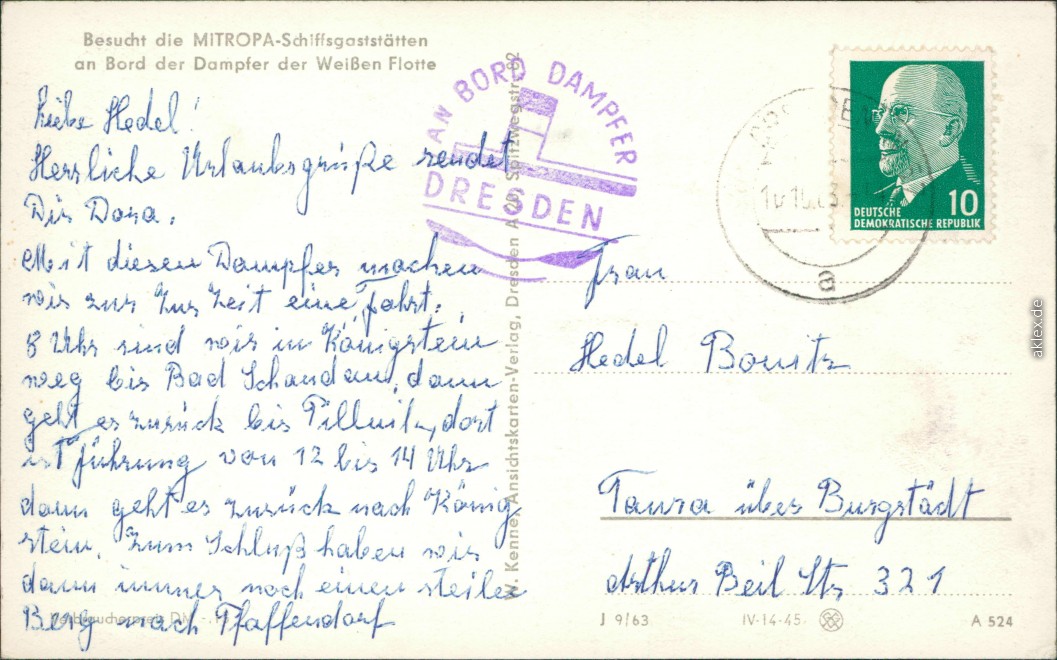 Besucht die MITROPA-Schiffsgaststätten
an Bord der Dampfer der Weißen Flotte
Liebe Hedel!
Herzliche Urlaubsgrüße sendet
Dir Dora.
Mit diesen Dampfer machen
wir zur Zur Zeit eine Fahrt.
8 Uhr sind wir in Königstein
weg bis Bad Schandau, dann
geht es zurück bis Pillnitz, dort
ist Führung von 12 bis 14 Uhr
dann geht es zurück nach König
stein. Zum Schluß haben wir
dann immer noch einen steilen
Berg nach Pfaffendorf
Verbraucherpreis DM
AN BORD DAMPFER
DRESDEN
W. Kenne, Ansichtskarten-Verlag, Dresden A 20, Spitzwegstr. 62
DEUTSCHE
DEMOKRATISCHE REPUBLIK
10
a
Frau
Hedel Bonitz
Taura über Burgstädt
Arthur Beil Str 321
J 9/63
IV-14-45
A 524
aklex.de